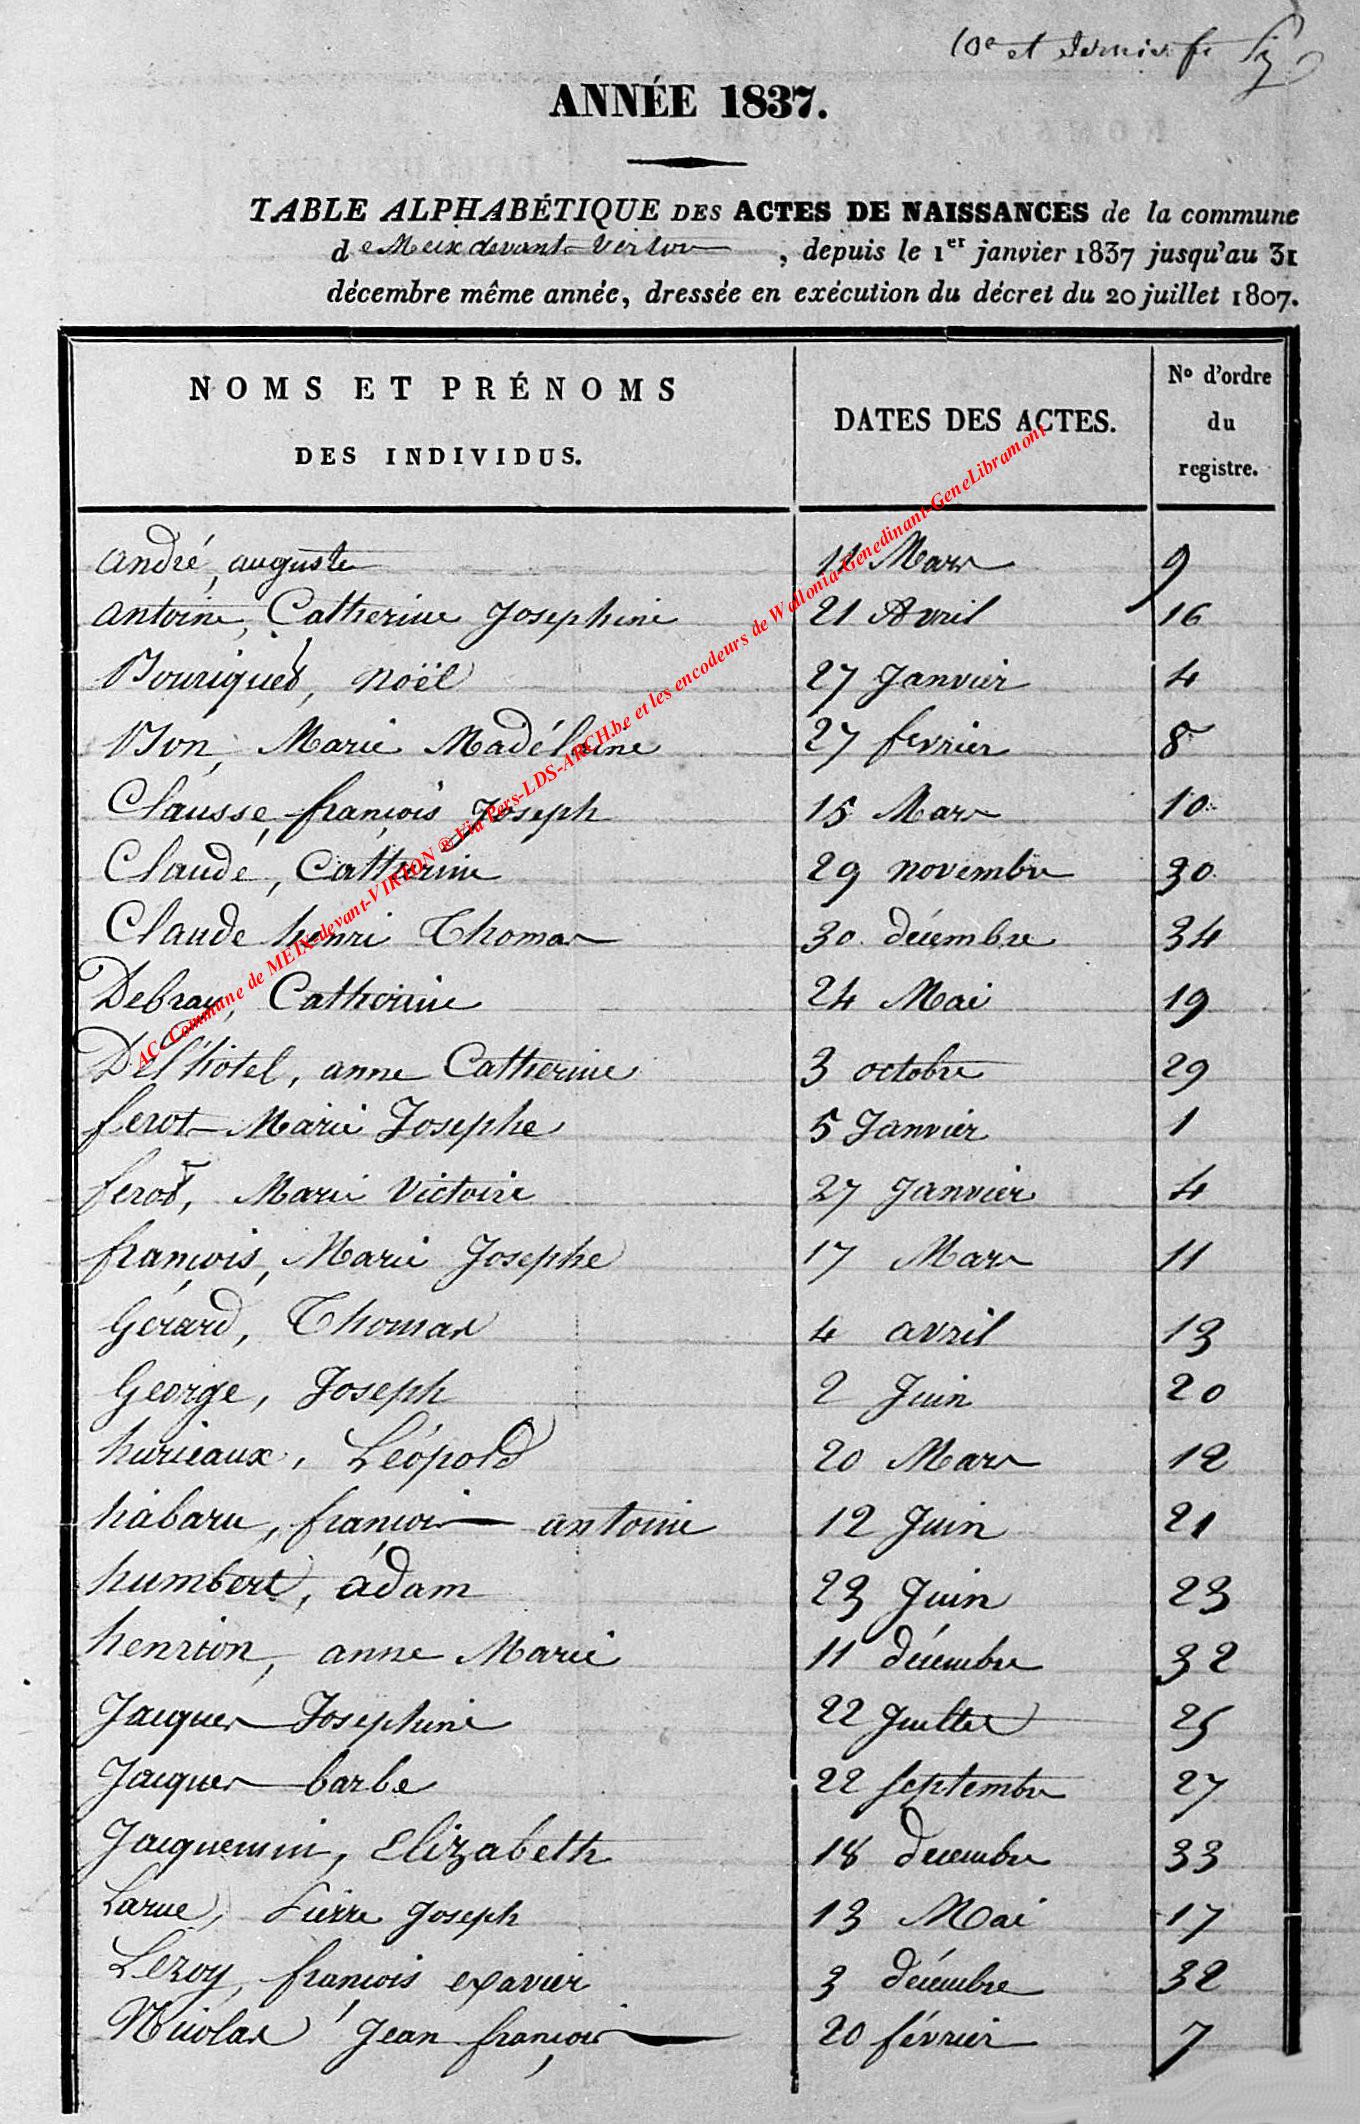 10e et dernier f
ANNÉE 1837.
TABLE ALPHABÉTIQUE DES ACTES DE NAISSANCES de la commune
de Meix devant Virton, depuis le 1er janvier 1837 jusqu'au 31
décembre même année, dressée en exécution du décret du 20 juillet 1807.
NOMS ET PRÉNOMS
DES INDIVIDUS.
DATES DES ACTES.
No d'ordre
du
registre.
André, auguste 11 Mars 9
Antoine, Catherine Josephine 21 Avril 16
Bouriquet, Noël 27 Janvier 4
Bon, Marie Madéleine 27 fevrier 8
Clausse, françois Joseph 15 Mars 10
Claude, Catherine 29 novembre 30
Claude henri Thomas 30 décembre 34
Debray, Catherine 24 Mai 19
Del'hotel, anne Catherine 3 octobre 29
ferot Marie Josephe 5 Janvier 1
ferot, Marie Victoire 27 Janvier 4
françois, Marie Josephe 17 Mars 11
Gérard, Thomas 4 avril 13
George, Joseph 2 Juin 20
hurieaux, Léopold 20 Mars 12
habaru, françois antoine 12 Juin 21
humbert, adam 23 Juin 23
henrion, anne Marie 11 décembre 32
Jacques Josephine 22 Juillet 25
Jacques barbe 22 septembre 27
Jacquemin, Elizabeth 18 decembre 33
Larue, Pierre Joseph 13 Mai 17
Leroy, françois exavier 3 décembre 32
Nicolas Jean françois 20 février 7
AC-Commune de MEIX-devant-VIRTON ® Via Pers-LDS-ARCH.be et les encodeurs de Wallonia-Genedinant-GeneLibramont